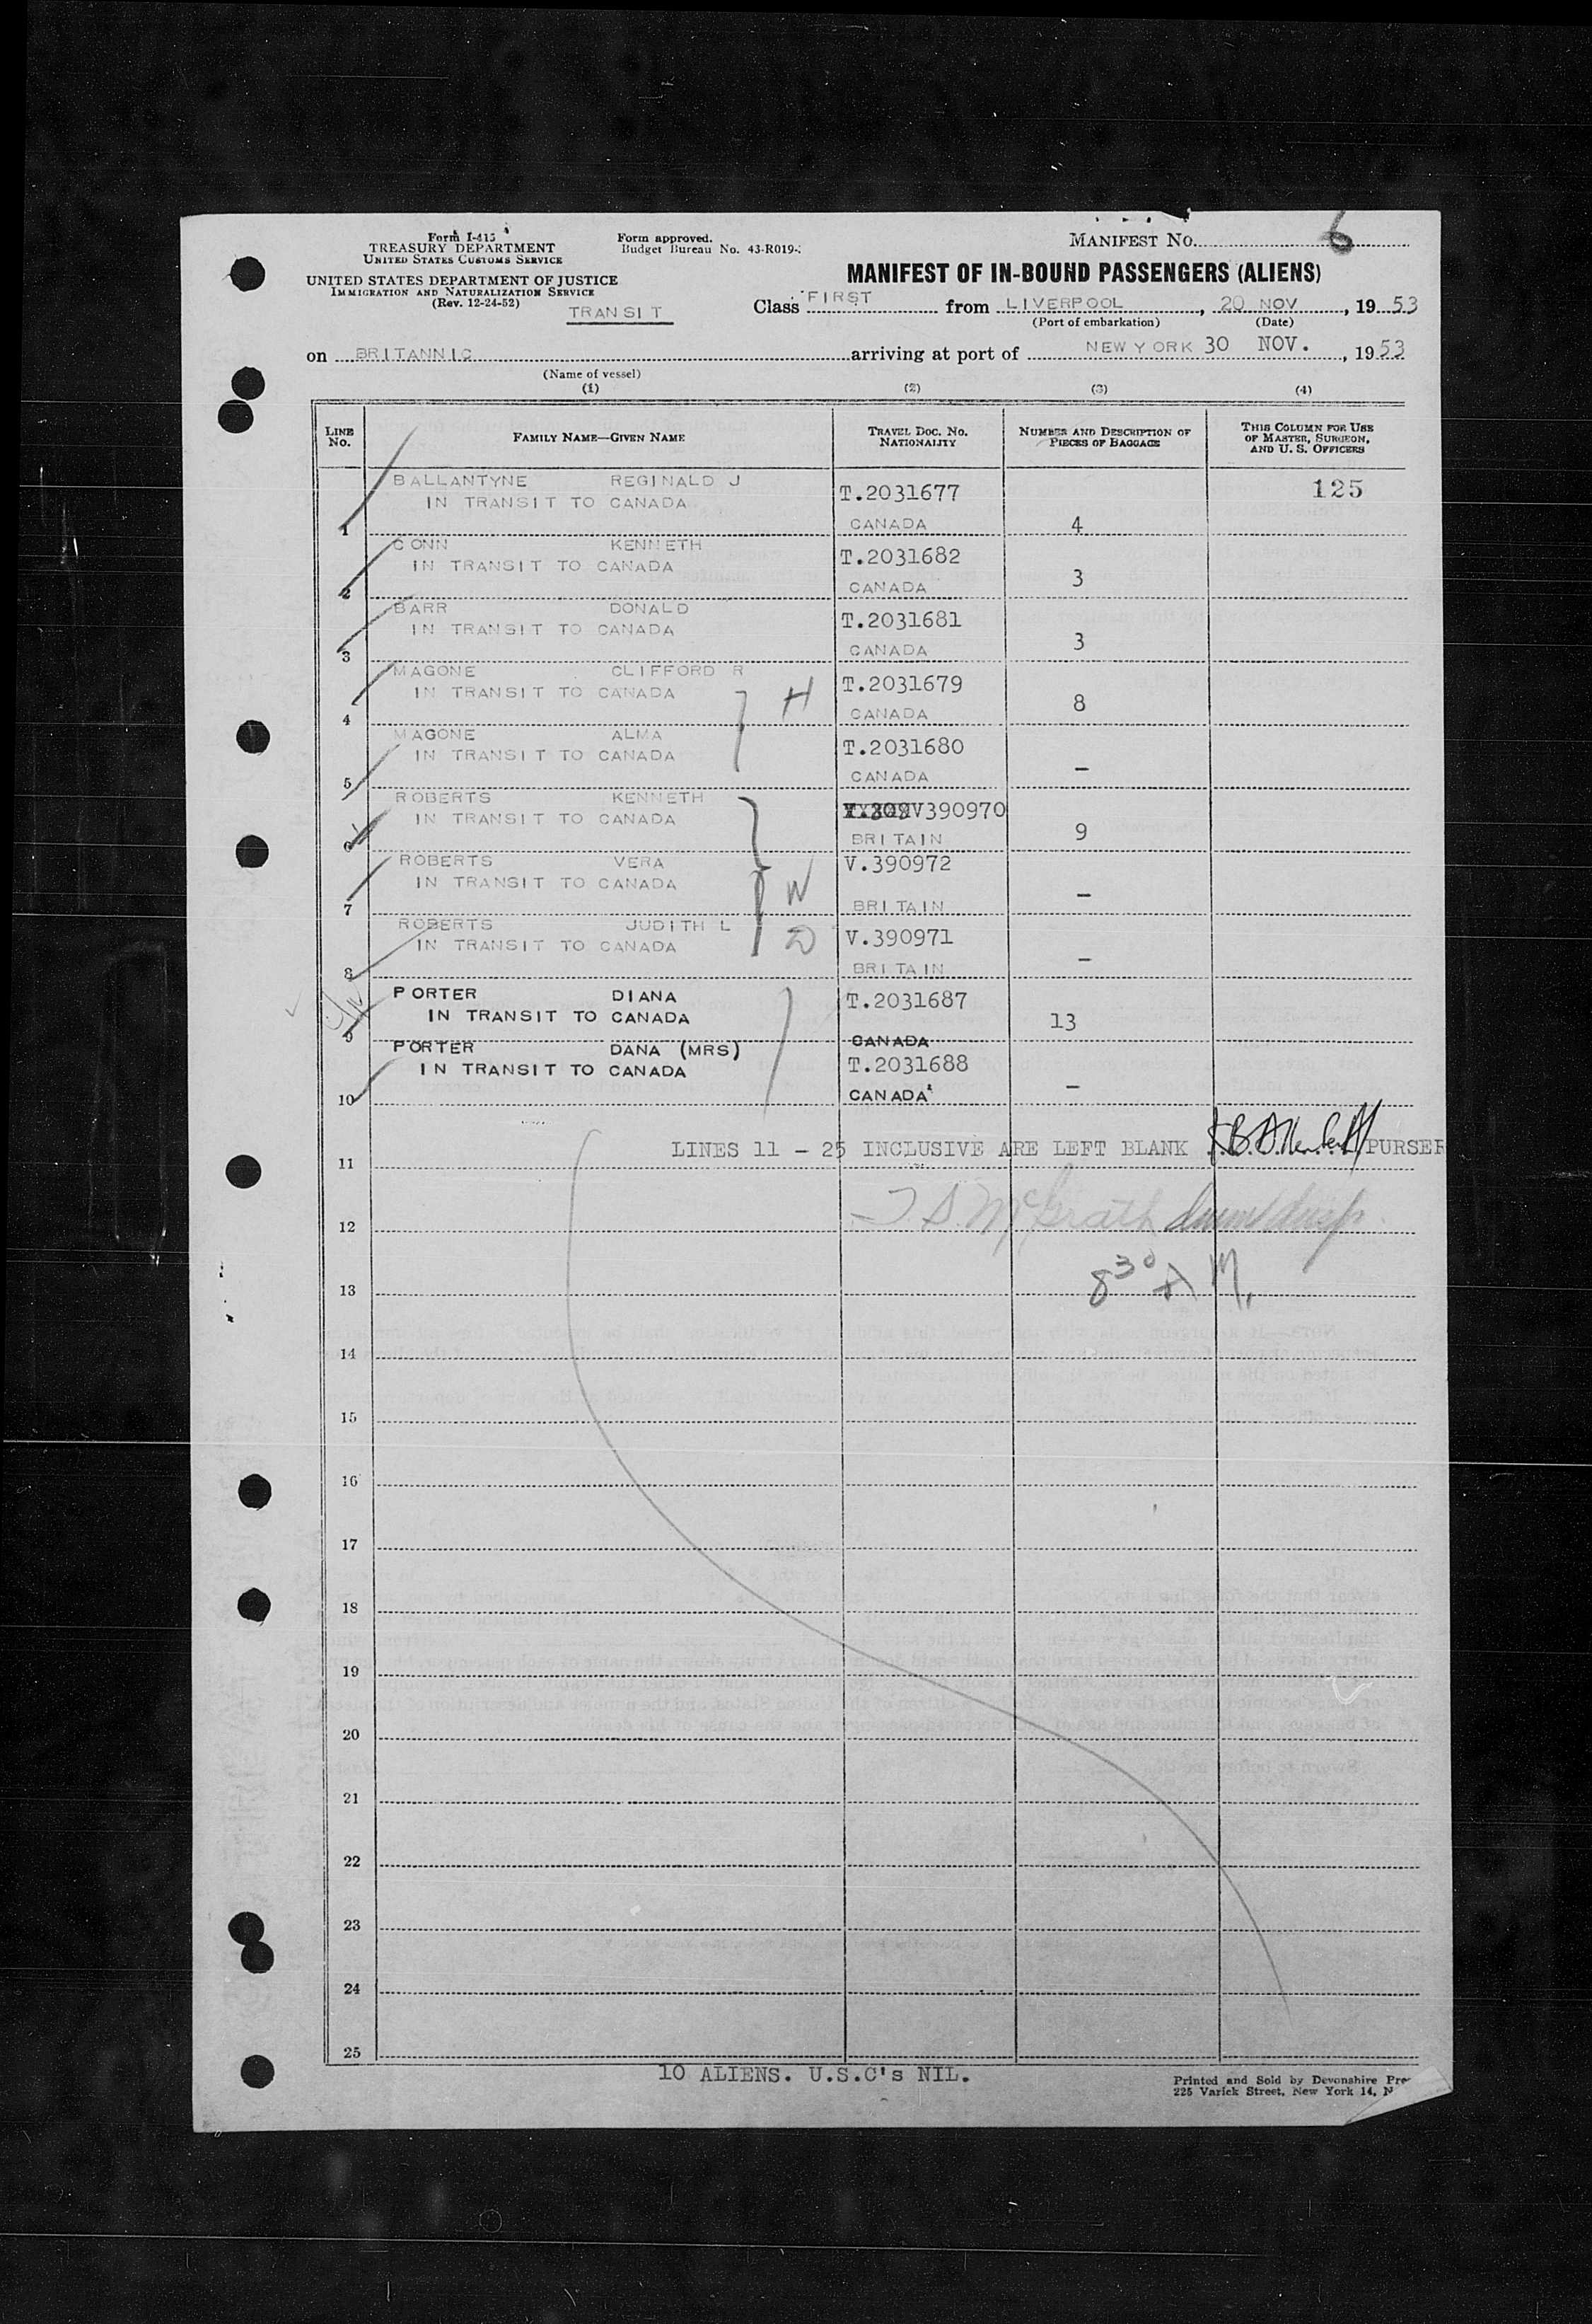 Form I-415
TREASURY DEPARTMENT
UNITED STATES CUSTOMS SERVICE
UNITED STATES DEPARTMENT OF JUSTICE
IMMIGRATION AND NATURALIZATION SERVICE
(Rev. 12-24-52)
TRANSIT
Form approved.
Budget Bureau No. 43-R019-
MANIFEST NO. 6
MANIFEST OF IN-BOUND PASSENGERS (ALIENS)
Class FIRST from LIVERPOOL, 20 NOV, 1953
(Port of embarkation) (Date)
on BRITANNIC arriving at port of NEW YORK 30 NOV., 1953
(Name of vessel)
(1) (2) (3) (4)
LINE NO. FAMILY NAME—GIVEN NAME TRAVEL DOC. NO. NATIONALITY NUMBER AND DESCRIPTION OF PIECES OF BAGGAGE THIS COLUMN FOR USE OF MASTER, SURGEON, AND U. S. OFFICERS
BALLANTYNE REGINALD J T.2031677 125
IN TRANSIT TO CANADA
1 CANADA 4
CONN KENNETH T.2031682
IN TRANSIT TO CANADA
2 CANADA 3
BARR DONALD T.2031681
IN TRANSIT TO CANADA
3 CANADA 3
MAGONE CLIFFORD R T.2031679
IN TRANSIT TO CANADA H
4 CANADA 8
MAGONE ALMA T.2031680
IN TRANSIT TO CANADA
5 CANADA –
ROBERTS KENNETH V390970
IN TRANSIT TO CANADA
6 BRITAIN 9
ROBERTS VERA V.390972
IN TRANSIT TO CANADA W
7 BRITAIN –
ROBERTS JUDITH L V.390971
IN TRANSIT TO CANADA D
8 BRITAIN –
PORTER DIANA T.2031687
IN TRANSIT TO CANADA
9 CANADA 13
PORTER DANA (MRS) T.2031688
IN TRANSIT TO CANADA
10 CANADA –
LINES 11 – 25 INCLUSIVE ARE LEFT BLANK PURSER
11
T. S. McGrath
12
8 30 A M.
13
14
15
16
17
18
19
20
21
22
23
24
25
10 ALIENS. U.S.C's NIL.
Printed and Sold by Devonshire
225 Varick Street, New York 14, N